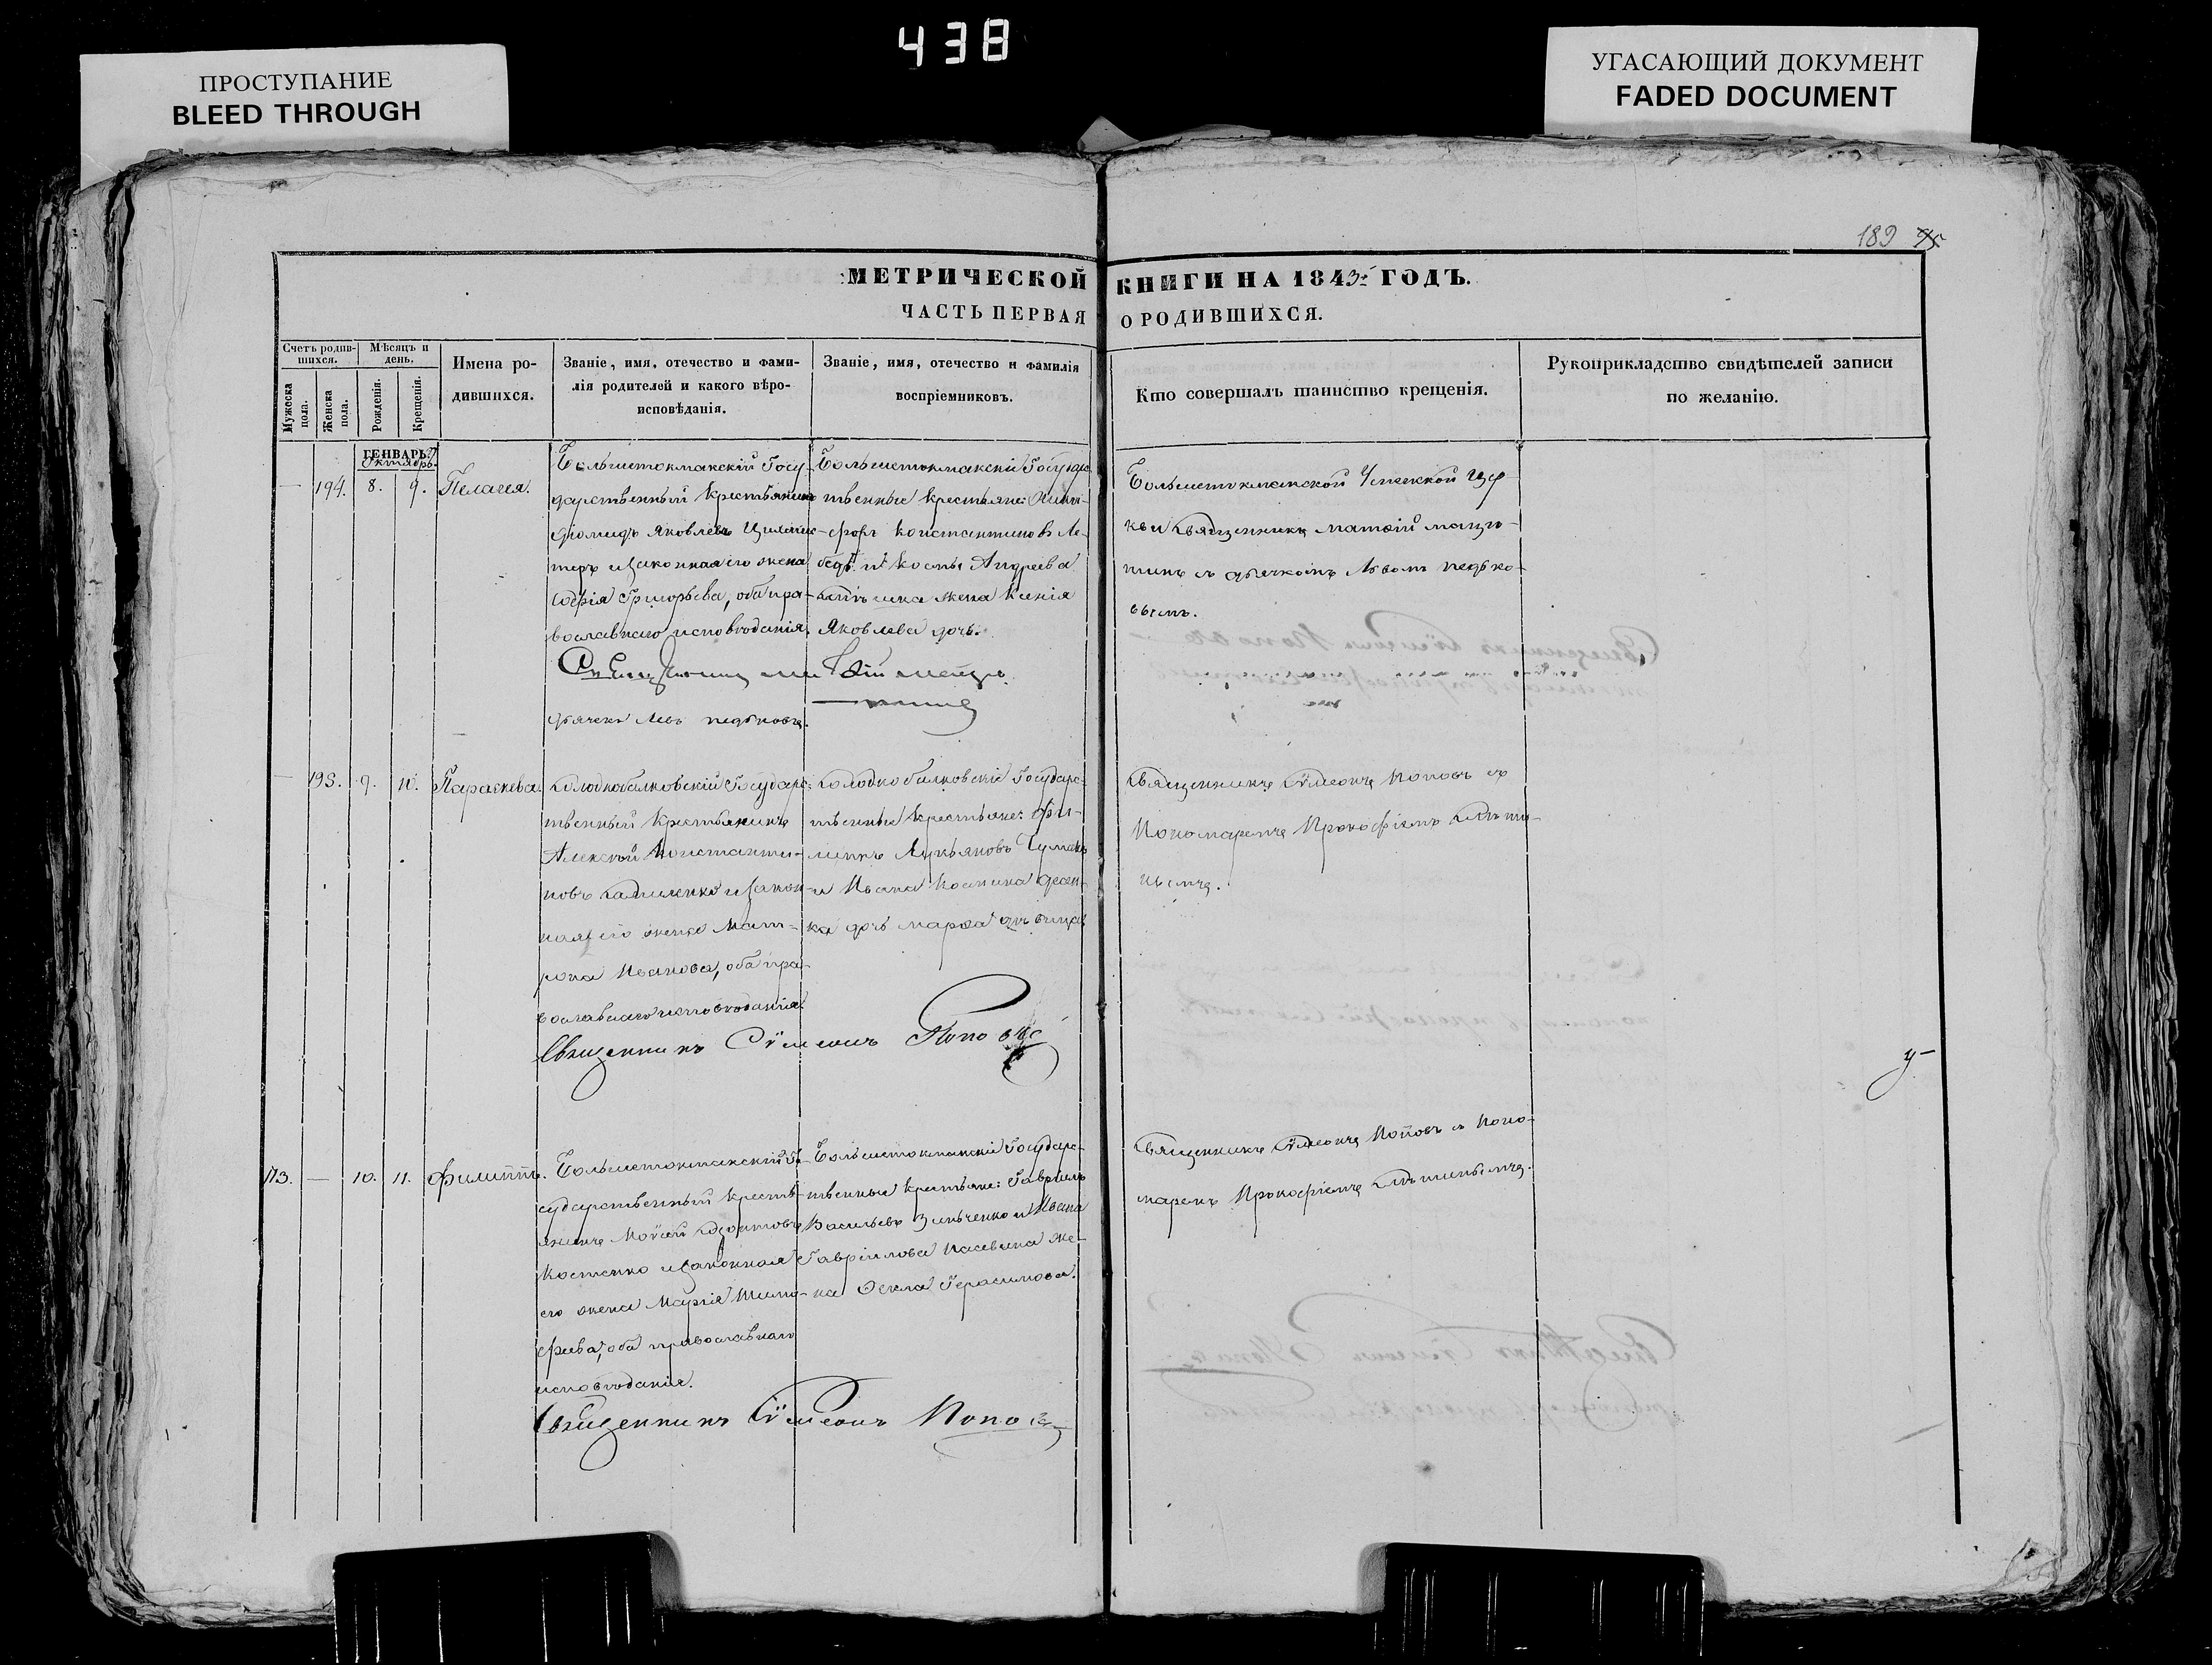 438
ПРОСТУПАНИЕ
BLEED THROUGH
УГАСАЮЩИЙ ДОКУМЕНТ
FADED DOCUMENT
189
МЕТРИЧЕСКОЙ КНИГИ НА 1843 ГОДЪ.
ЧАСТЬ ПЕРВАЯ О РОДИВШИХСЯ.
Счетъ родив-
шихся.
Мужеска
пола.
Женска
пола.
Мѣсяцъ и
день.
Рожденія.
Крещенія.
Имена ро-
дившихся.
Званіе, имя, отечество и фами-
лія родителей и какого вѣро-
исповѣданія.
Званіе, имя, отечество и фамилія
воспріемниковъ.
Кто совершалъ таинство крещенія.
Рукоприкладство свидѣтелей записи
по желанію.
ГЕНВАРЬ
Октябрь
— 194. 8. 9. Пелагея.
Большетокмакскій Госу-
дарственный крестьянинъ
Діомидъ Яковлевъ
и законная его жена
Григорьева, оба пра-
вославнаго исповѣданія.
Большетокмакскіе Государс
твенные крестьяне:
Константиновъ Ле-
и Космы Андреева
жена Ксенія
Яковлева дочь.
Большетокмакской Успенской цер-
кви Священникъ Матѳій
съ дьячкомъ Львомъ
вымъ.
дьячекъ Левъ
— 195. 9. 10. Параскева.
Солодкобалковскій Государс-
твенный крестьянинъ
Алексѣй Константи-
новъ и закон-
ная его жена Мат-
рона Иванова, оба пра-
вославнаго исповѣданія.
Солодкобалковскіе Государс-
твенные крестьяне: Фи-
липпъ Лукьяновъ Чумакъ
и Ивана
дочь Марѳа дѣвица
Священникъ Сѵмеонъ Поповъ съ
Пономаремъ Прокофіемъ
нымъ.
Священникъ Сѵмеонъ Поповъ
173. — 10. 11. Филиппъ.
Большетокмакскій Го-
сударственный кресть-
янинъ Моѵсей
Костенко и законная
его жена Марія Тимо-
фѣева, оба православнаго
исповѣданія.
Большетокмакскіе Государс-
твенные крестьяне: Гавріилъ
Васильевъ Зинченко и Ивана
Гавріилова жe-
на Ѳекла Герасимова.
Священникъ Сѵмеонъ Поповъ съ Поно-
маремъ Прокофіемъ
Священникъ Сѵмеонъ Поповъ